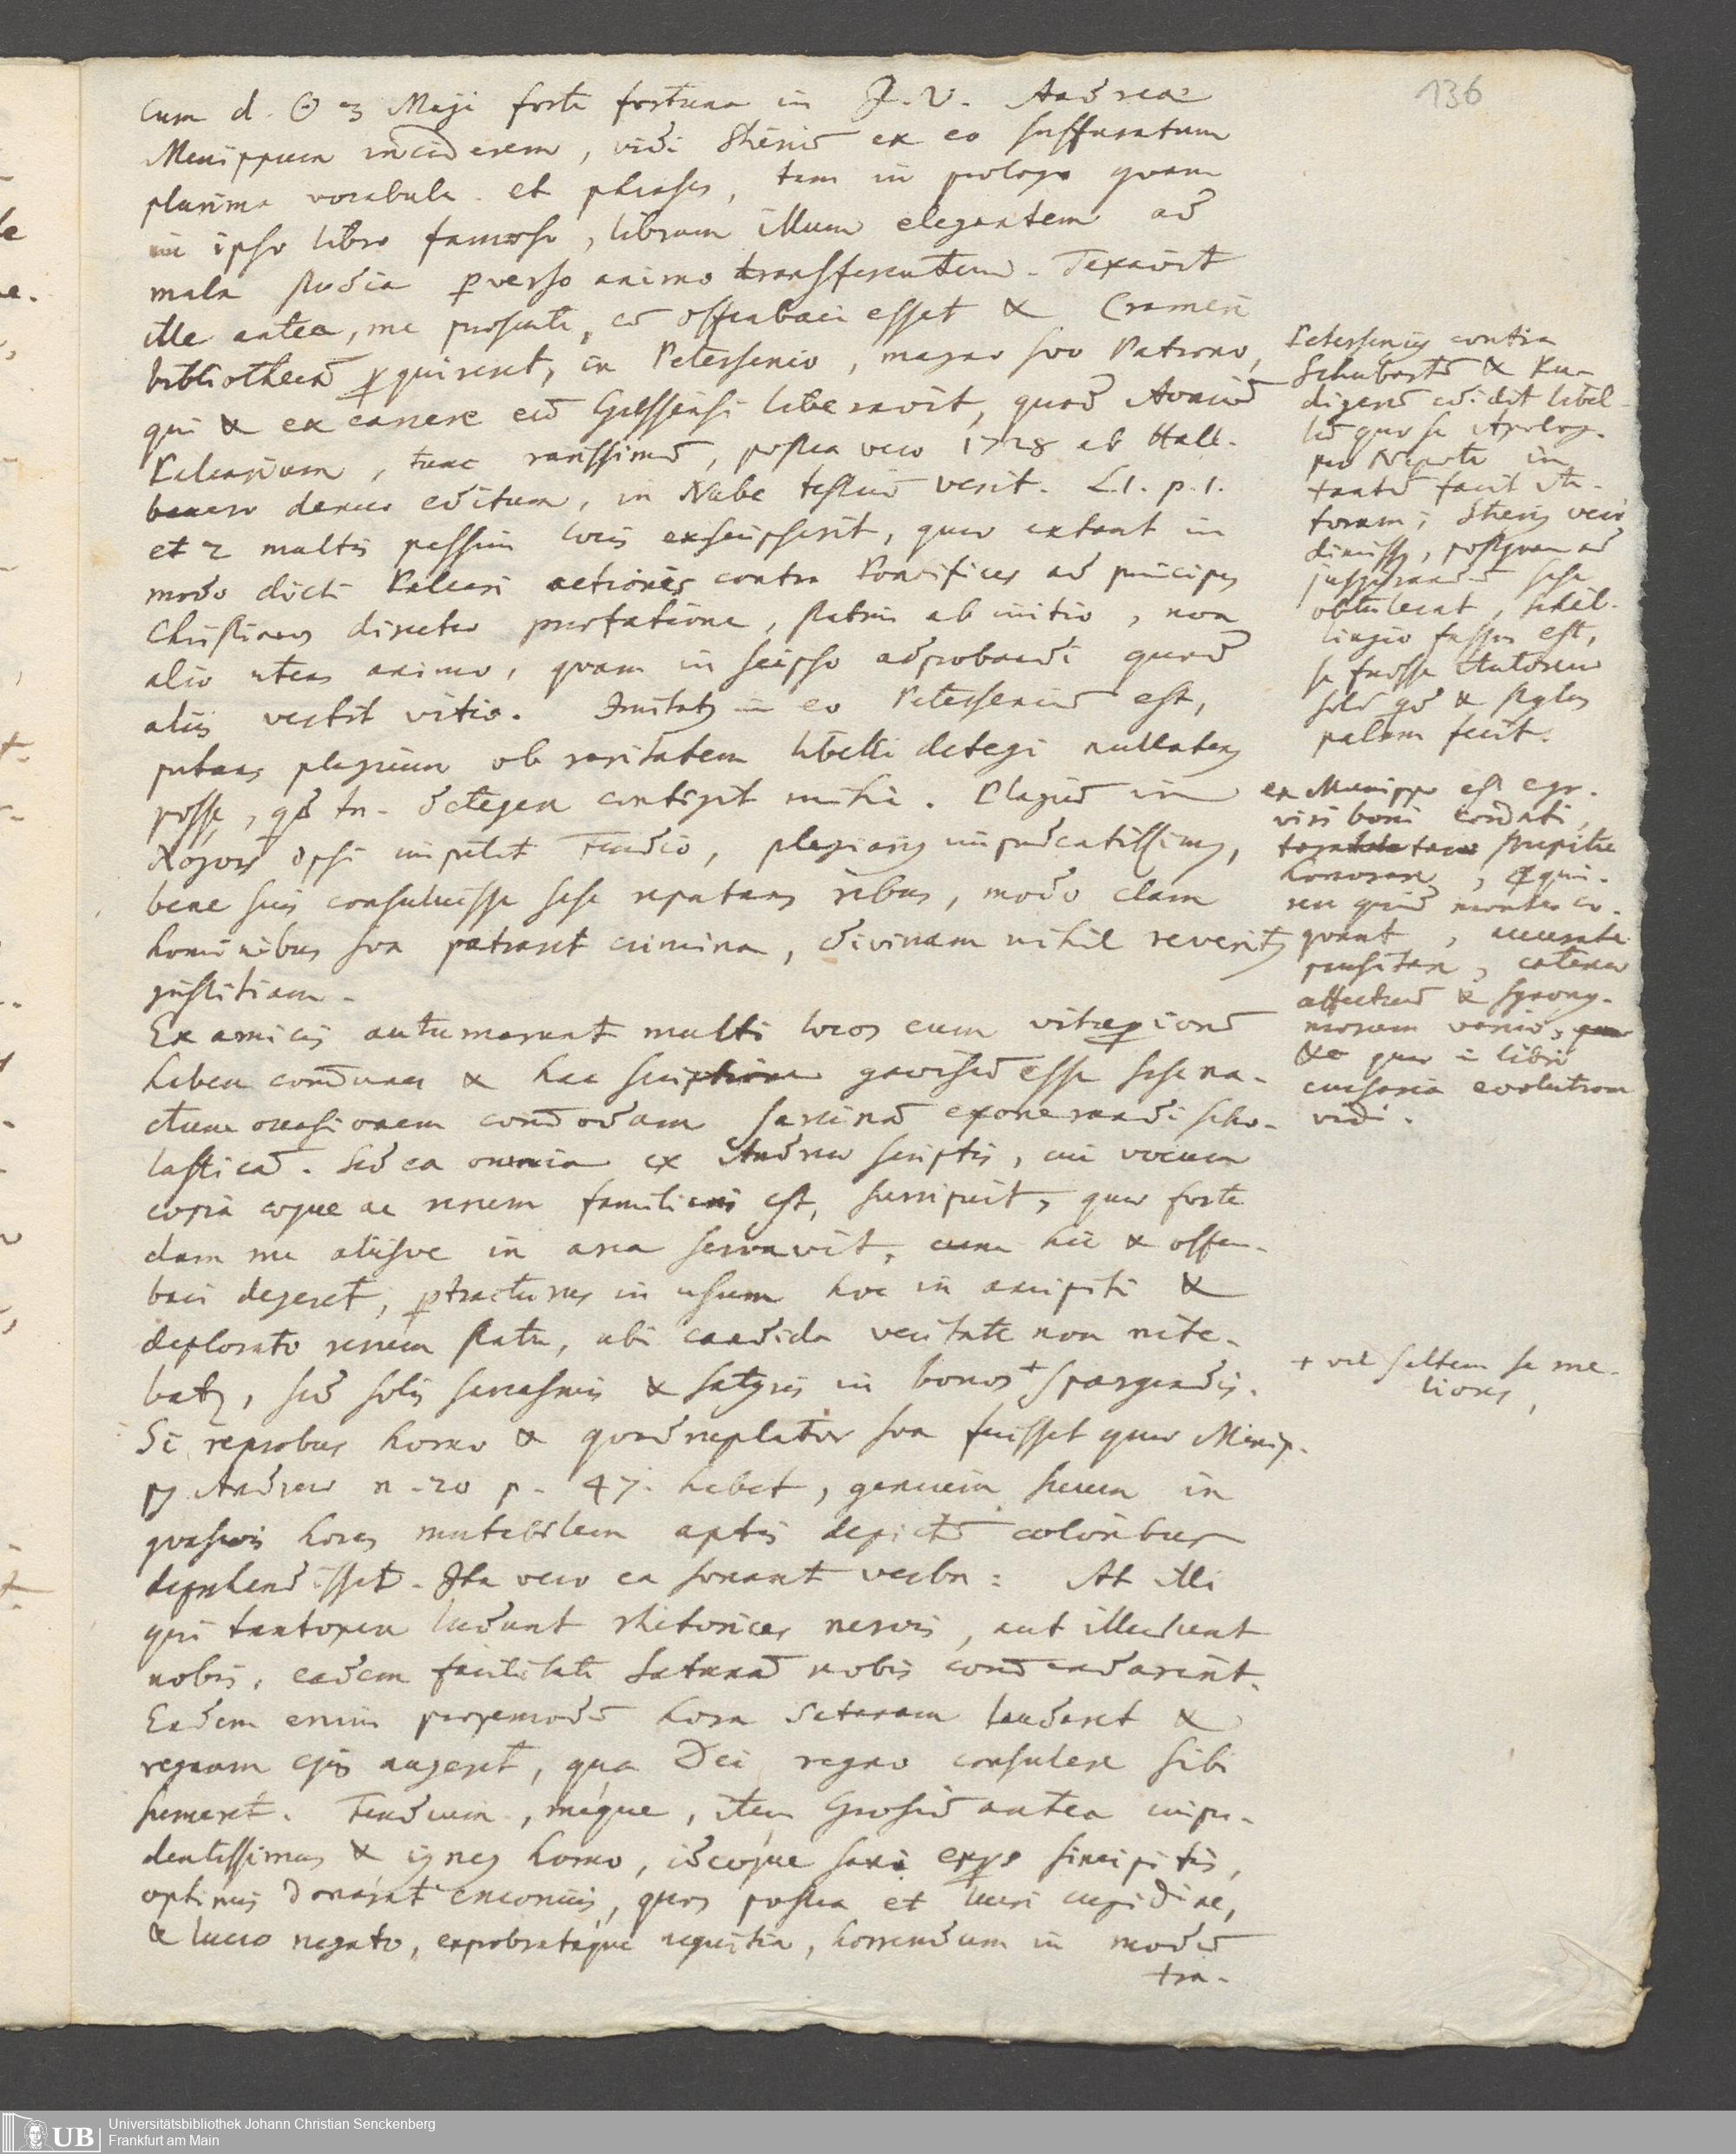 136
Cum d. ☉ 3 Maji forte fortuna in J. V. Andreae
Menippum inciderem, vidi ex eo suffuratum
plurima vocabula et phrases, tam in prologo quam
in ipso libro famoso, librum illum elegantem ad
mala studia perverso animo transferentem. Taxavit
ille antea, me praesente, cum Offenbaci esset & Crameri
bibliothecam perquireret, in Petersenio, magno suo Patrono,
qui & ex carcere eum Giessensi liberavit, quod Aonium
Palearium, tunc rarissimum, postea vero 1728 ab Hall-
denuo editum, in Nube testium L. 1. p. 1.
et 2 multis passim locis exscripserit, quae extant in
modo dicti Paleari actiones contra Pontifices ad principes
Christianos directae praefatione, statim ab initio, non
alio utens animo, quam in seipso adprobandi quod
aliis vertit vitio. Imitatus in eo Petersenium est,
putans plagium ob raritatem libelli detegi nullatenus
posse, quod tn. detegere contigit mihi. Plagium in
impulit Fendio, plagiarius impudentissimus,
bene suis consuluisse sese reputans rebus, modo clam
hominibus sua patraret crimina, divinam nihil reveritus
justitiam.
Ex amicis autumarunt multi locos eum
habere communes & hac scriptione gavisum esse sese na-
ctum occasionem commodam sarcinam exonerandi scho-
lasticam. Sed ea omnia ex Andreae scriptis, cui vocum
copia eoque ac rerum familiaris est, surripuit, quae forte
dum me aliisve in arca servavit, cum hic & Offen-
baci degeret, pertracturus in usum hoc in ancipiti &
deplorato rerum statu, ubi candida veritate non nite-
batur, sed solis sarcasmis & satyris in bonos + spargendis.
Si reprobus homo & quadruplator sua fuisset quae Menip-
pus Andreae n. 20 p. 47. habet, genium suum in
quasvis horas mutabilem aptis depictum coloribus
deprehendisset. Ita vero ea sonant verba: At illi
qui tantopere ludunt rhetorices nervis, aut illudunt
nobis, eadem facilitate Satanam nobis commendarint.
Eadem enim hora Satanam laudaret &
regnum ejus augeret, qua Dei regno consulere sibi
sumeret. Fendium, meque, item Grosium antea impu-
dentissimus & igneus homo, ideoque sani sincipitis,
optimis donarat encomiis, quos postea et lucri cupidine,
& lucro negato, exprobrataque nequitia, horrendum in modum
tra-
Petersenius contra
Schubartum & Ru-
digerum edidit libel-
lum quo se Apolog.
pro Nepote in
tantum facit Au-
torem; vero
dimissus, postquam ad
jusjurandum sese
obtulerat,
fassus est,
se fuisse Autorem
solum quod & stylus
palam facit.
ex Menippo est egr.
viri boni cordati,
stupitu
honorare, & qui-
ne quid montes co-
quant, accurate
pensitare, catena
affectuum & synony-
morum varia,
&c quae in libri
cursoria evolutione
vidi.
+ vel saltem se me-
liores,
UB Universitätsbibliothek Johann Christian Senckenberg
Frankfurt am Main